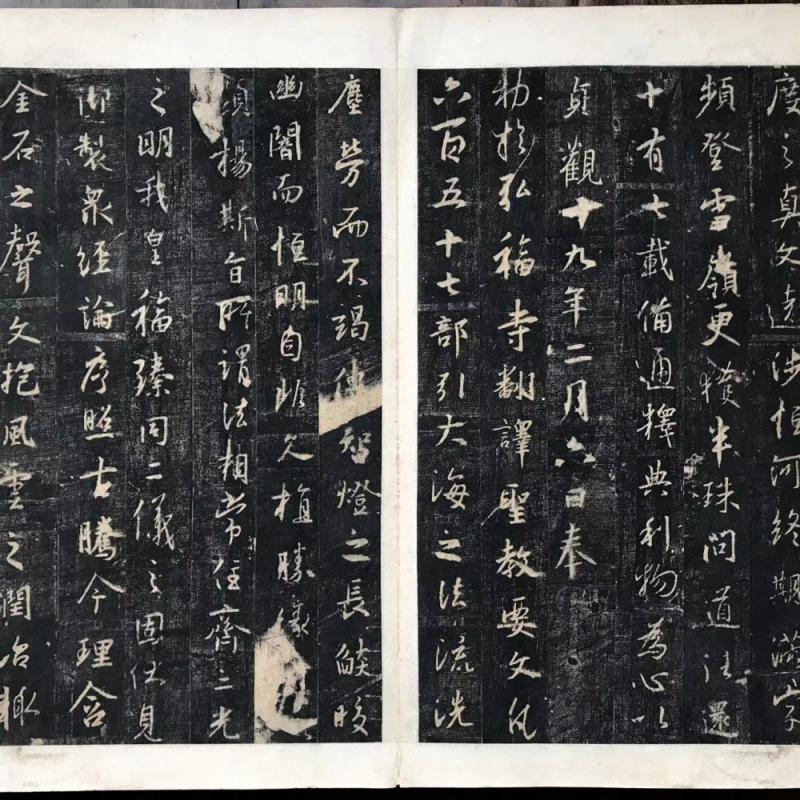 度之真文遠涉恒河終期滿字
頻登雪嶺更獲半珠問道往還
十有七載備通釋典利物為心以
貞觀十九年二月六日奉
勅於弘福寺翻譯聖教要文凡
六百五十七部引大海之法流洗
塵勞而不竭傳智燈之長燄皎
幽闇而恒明自非久植勝緣
顯揚斯旨所謂法相常住齊三光
之明我皇福臻同二儀之固伏見
御製衆經論序照古騰今理含
金石之聲文抱風雲之潤治輒